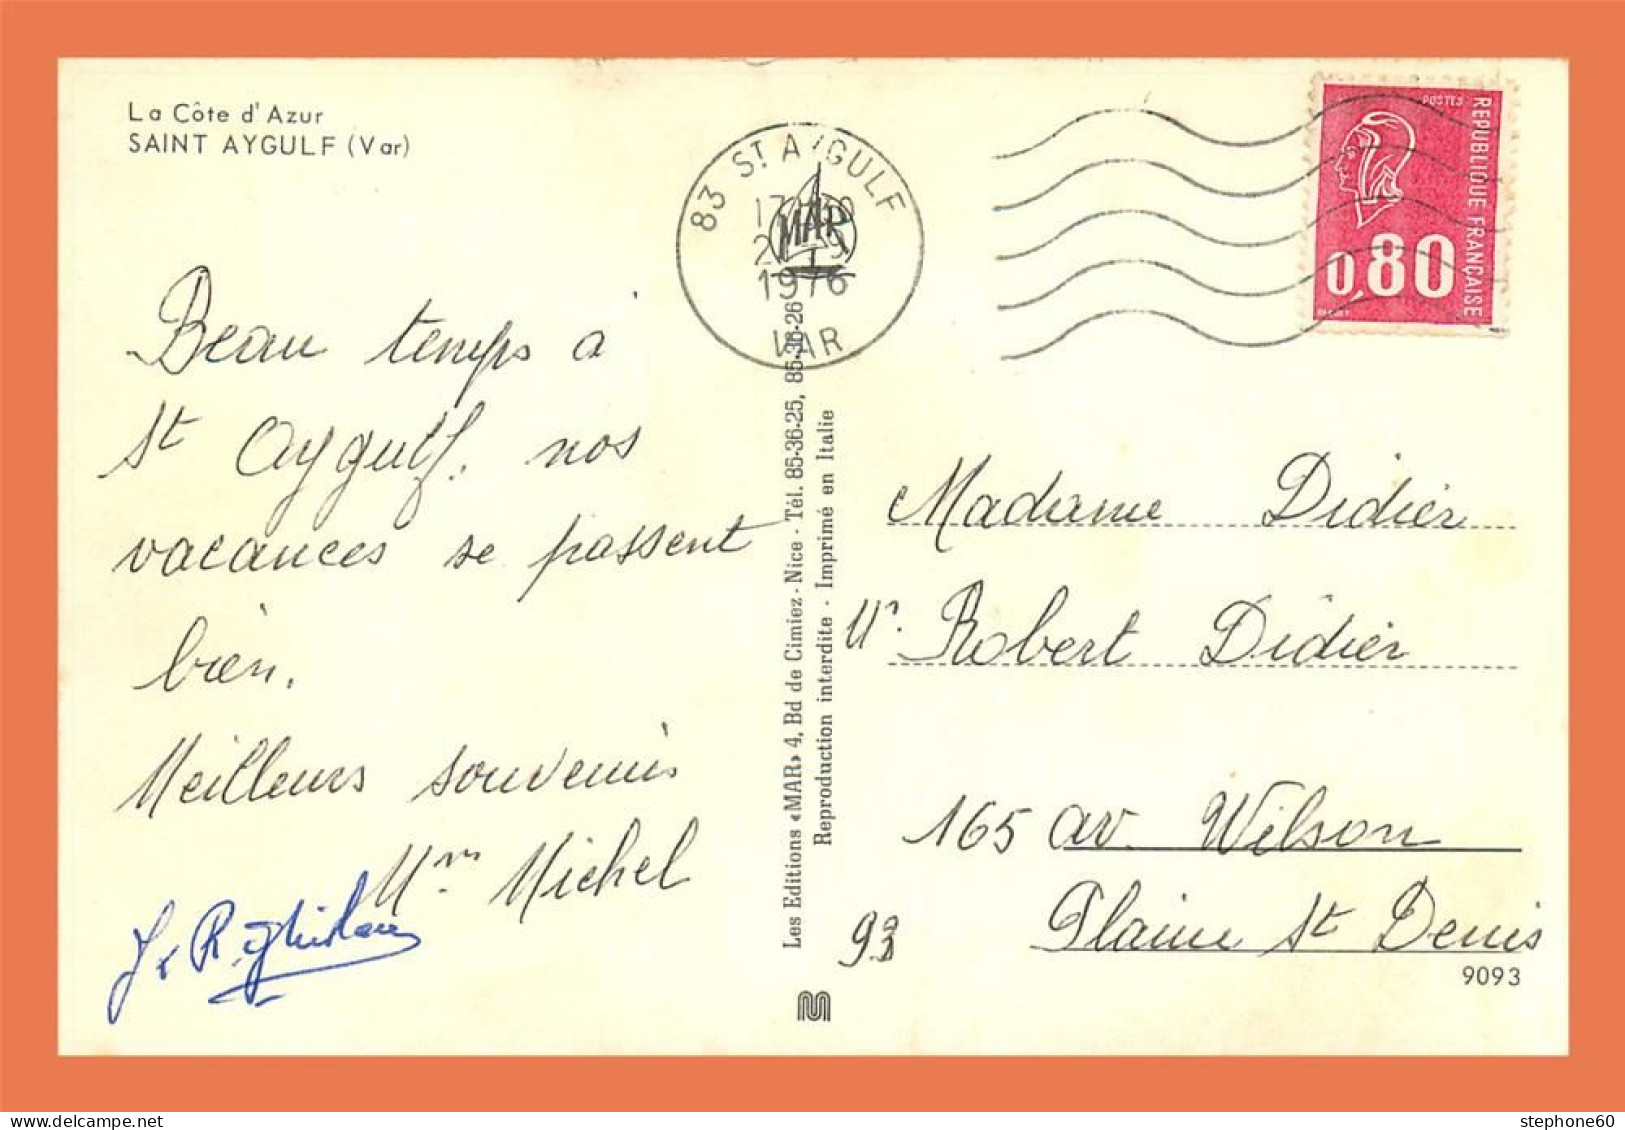 La Côte d'Azur
SAINT AYGULF (Var)
83 ST AYGULF
1976
VAR
MAR
POSTES
REPUBLIQUE FRANÇAISE
0,80
Beau temps à
St Aygulf. nos
vacances se passent
bien.
Meilleurs souvenirs
Mme Michel
Les Editions «MAR» 4, Bd de Cimiez - Nice - Tél. 85-36-25, 85-36-26
Reproduction interdite - Imprimé en Italie
Madame Didier
Mr. Robert Didier
165 av. Wilson
93 Plaine St Denis
9093
stephone60